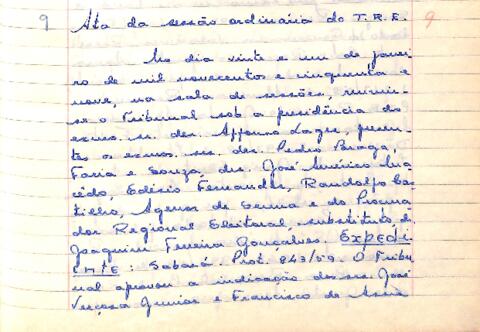 9 Ata da sessão ordinária do T.R.E. 9
No dia vinte e um de janei-
ro de mil novecentos e cinquenta e
nove, na sala de sessões, reuniu-
se o Tribunal sob a presidência do
exmo. sr. des. Affonso Lages, presen-
tes os exmos. srs. des. Pedro Braga,
Faria e Souza, drs. José Américo Ma-
cêdo, Edésio Fernandes, Randolfo Cas-
tilho, Agenor de Senna e do Procura
dor Regional Eleitoral, substituto, dr
Joaquim Ferreira Gonçalves. Expedi-
ente: Sabará. Prot. 843/59. O Tribu
nal aprovou a indicação dos srs. José
Junior e Francisco de Assis